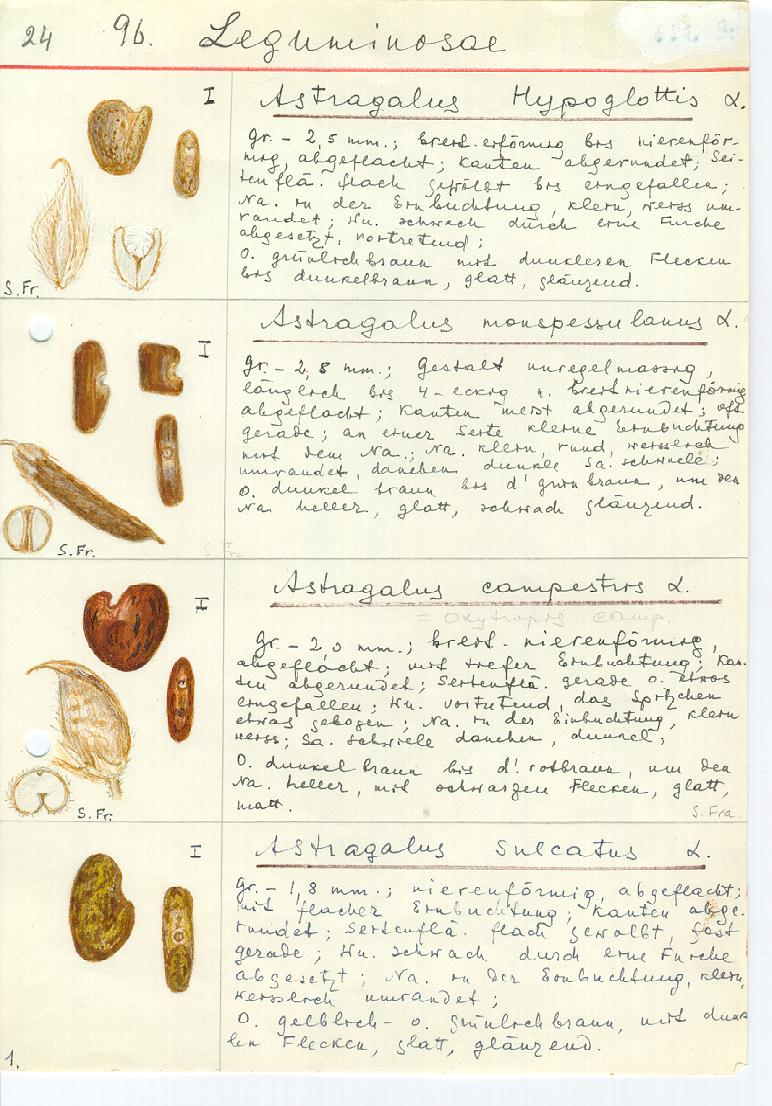 24 96. Leguminosae
I
Astragalus Hypoglottis L.
Gr. - 2,5 mm.; breit eiförmig bis nierenför-
mig, abgeflacht; Kanten abgerundet; Sei-
tenflä. flach gewölbt bis eingefallen;
Na. in der Einbuchtung, klein, weiss um-
randet; Wu. schwach durch eine Furche
abgesetzt, vortretend;
O. grünlichbraun mit dunkleren Flecken
bis dunkelbraun, glatt, glänzend.
S. Fr.
I
Astragalus monspessulanus L.
Gr. - 2,8 mm.; Gestalt unregelmassig,
länglich bis 4-eckig u. breitnierenförmig
abgeflacht; Kanten meist abgerundet; oft
gerade; an einer Seite kleine Einbuchtung
mit dem Na.; Na. klein, rund, weisslich
umrandet, daneben dunkle Sa. schwiele;
O. dunkel braun bis d' grün braun, um den
Na heller, glatt, schwach glänzend.
S. Fr.
I
Astragalus campestris L.
= Oxytropis camp.
Gr. - 2,0 mm.; breit nierenförmig,
abgeflacht; mit tiefer Einbuchtung; Kan-
ten abgerundet; Seitenflä. gerade o. etwas
eingefallen; Wu. vortretend, das Spitzchen
etwas gebogen; Na. in der Einbuchtung, klein
weiss; Sa. schwiele daneben, dunkel;
O. dunkel braun bis d! rotbraun, um den
Na. heller, mit schwarzen Flecken, glatt,
matt.
S. Fra.
S. Fr.
I
Astragalus Sulcatus L.
Gr. - 1,8 mm.; nierenförmig, abgeflacht;
mit flacher Einbuchtung; Kanten abge-
rundet; Seitenflä. flach gewölbt, fast
gerade; Wu. schwach durch eine Furche
abgesetzt; Na. in der Einbuchtung, klein,
weisslich umrandet;
O. gelblich- o. grünlichbraun, mit dunk
len Flecken, glatt, glänzend.
1.